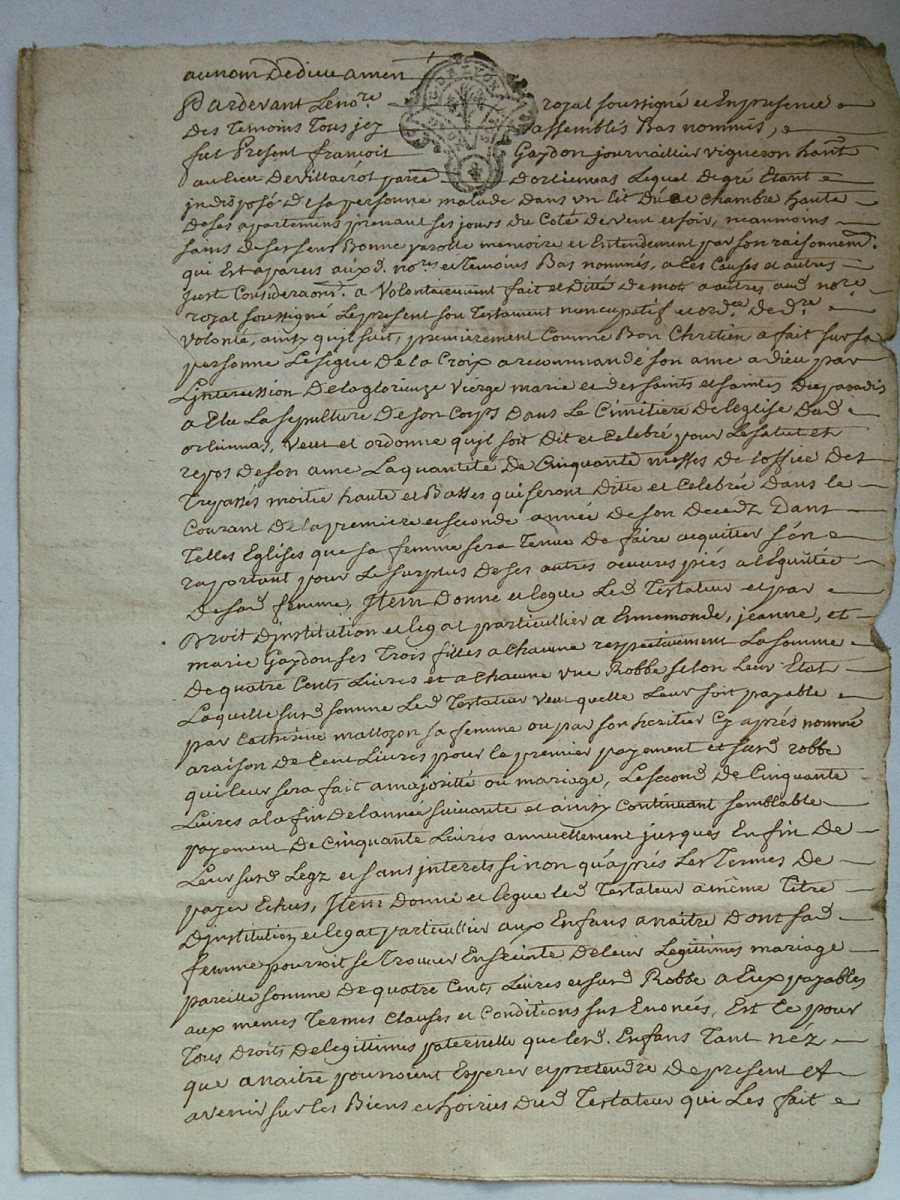 au nom de dieu amen
Pardevant Le no.re royal soussigné et En presence
Des Temoins Tous jcy assemblés Bas nommés,
fut Present francois Gaydon journaillier vigneron hant
au lieu de villacrot parce D'orliennas Lequel de gré Etant
jndisposé de sa personne malade dans un lit Du de chambre haute
de ses apartemens prenant ses jours du Coté de vent et soir, neanmoins
sains de ses sens Bonne parolle memoire et Entendement par son raisonnem.t
qui Est aparcus aux d. no.res et Temoins Bas nommés, a Les Causes et autres
juste Consideraons. a Volontairement fait et Ditté De mot a autres aud no.re
royal soussigné Le present son Testament nuncupatif et ord.ce de d.re
Volonté, ainsy quil suit, premierement Comme Bon Chretien a fait sur sa
personne Le signe De la Croix a recommandé son ame a dieu par
L'jntercession De la glorieuze Vierge marie et des saints et saintes du paradis
a Elu La sepulture De son Corps Dans Le Cimitiere de l'eglise Dud
orliennas, Veut et ordonne quil soit Dit et Celebré pour Le salut et
repos de son ame La quantité de Cinquante messes de l'office des
Trepassés moitié haute et Basses qui seront Ditte et Celebrée Dans le
Courant De la premiere et seconde année de son Decedz Dans
Telles Eglises que sa femme sera Tenue De faire acquitter s'en
raportant pour Le surplus De ses autres oeuvres piés a l'Equittée
De sad femme, Jtem Donne et legue Led Testateur et par
Droit D'jnstitution et legat particullier a Ennemonde, jeanne, et
marie Gaydon ses Trois filles a Chacune respectivement La somme
De quatre Cents Livres et a Chacune une Robbe selon Leur Etat
Laquelle surd somme Led Testateur veut quelle Leur soit payable
par Catherine mallozon sa femme ou par son heritier Cy aprés nommé
a raison De Cent Livres pour le premier payement et surd robbe
qui leur sera fait a majorité ou mariage, Le second De Cinquante
Livres a la fin de l'année suivante et ainsy Continuant semblable
payement De Cinquante Livres annuellement jusques En fin De
Leur surd Legz et sans interets si non qu'aprés Les Termes De
payer Echus, Jtem Donne et legue led Testateur a même Titre
D'jnstitution et legat particullier aux Enfans a naitre Dont sad
femme pourroit se Trouver Enseinte De leur Legittimes mariage
pareille somme De quatre Cents Livres et surd Robbe a Eux payables
aux memes Termes Clauses et Conditions sus Enoncés, Est Ce pour
Tous Droits De legittimes paternelle que lesd. Enfans Tant néz
que a naitre pourroient Esperer et pretendre De present et
avenir sur les Biens et hoiries Dud Testateur que Les fait